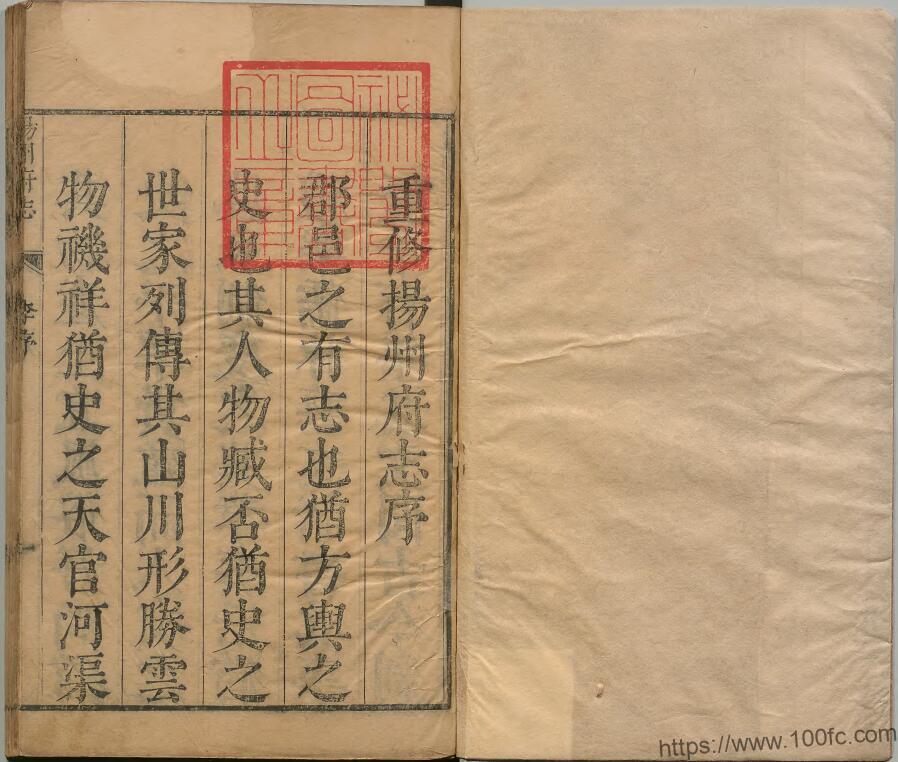 重修揚州府志序
郡邑之有志也猶方輿之
史也其人物臧否猶史之
世家列傳其山川形勝雲
物禨祥猶史之天官河渠
揚州府志
李序
一
https://www.100fc.com